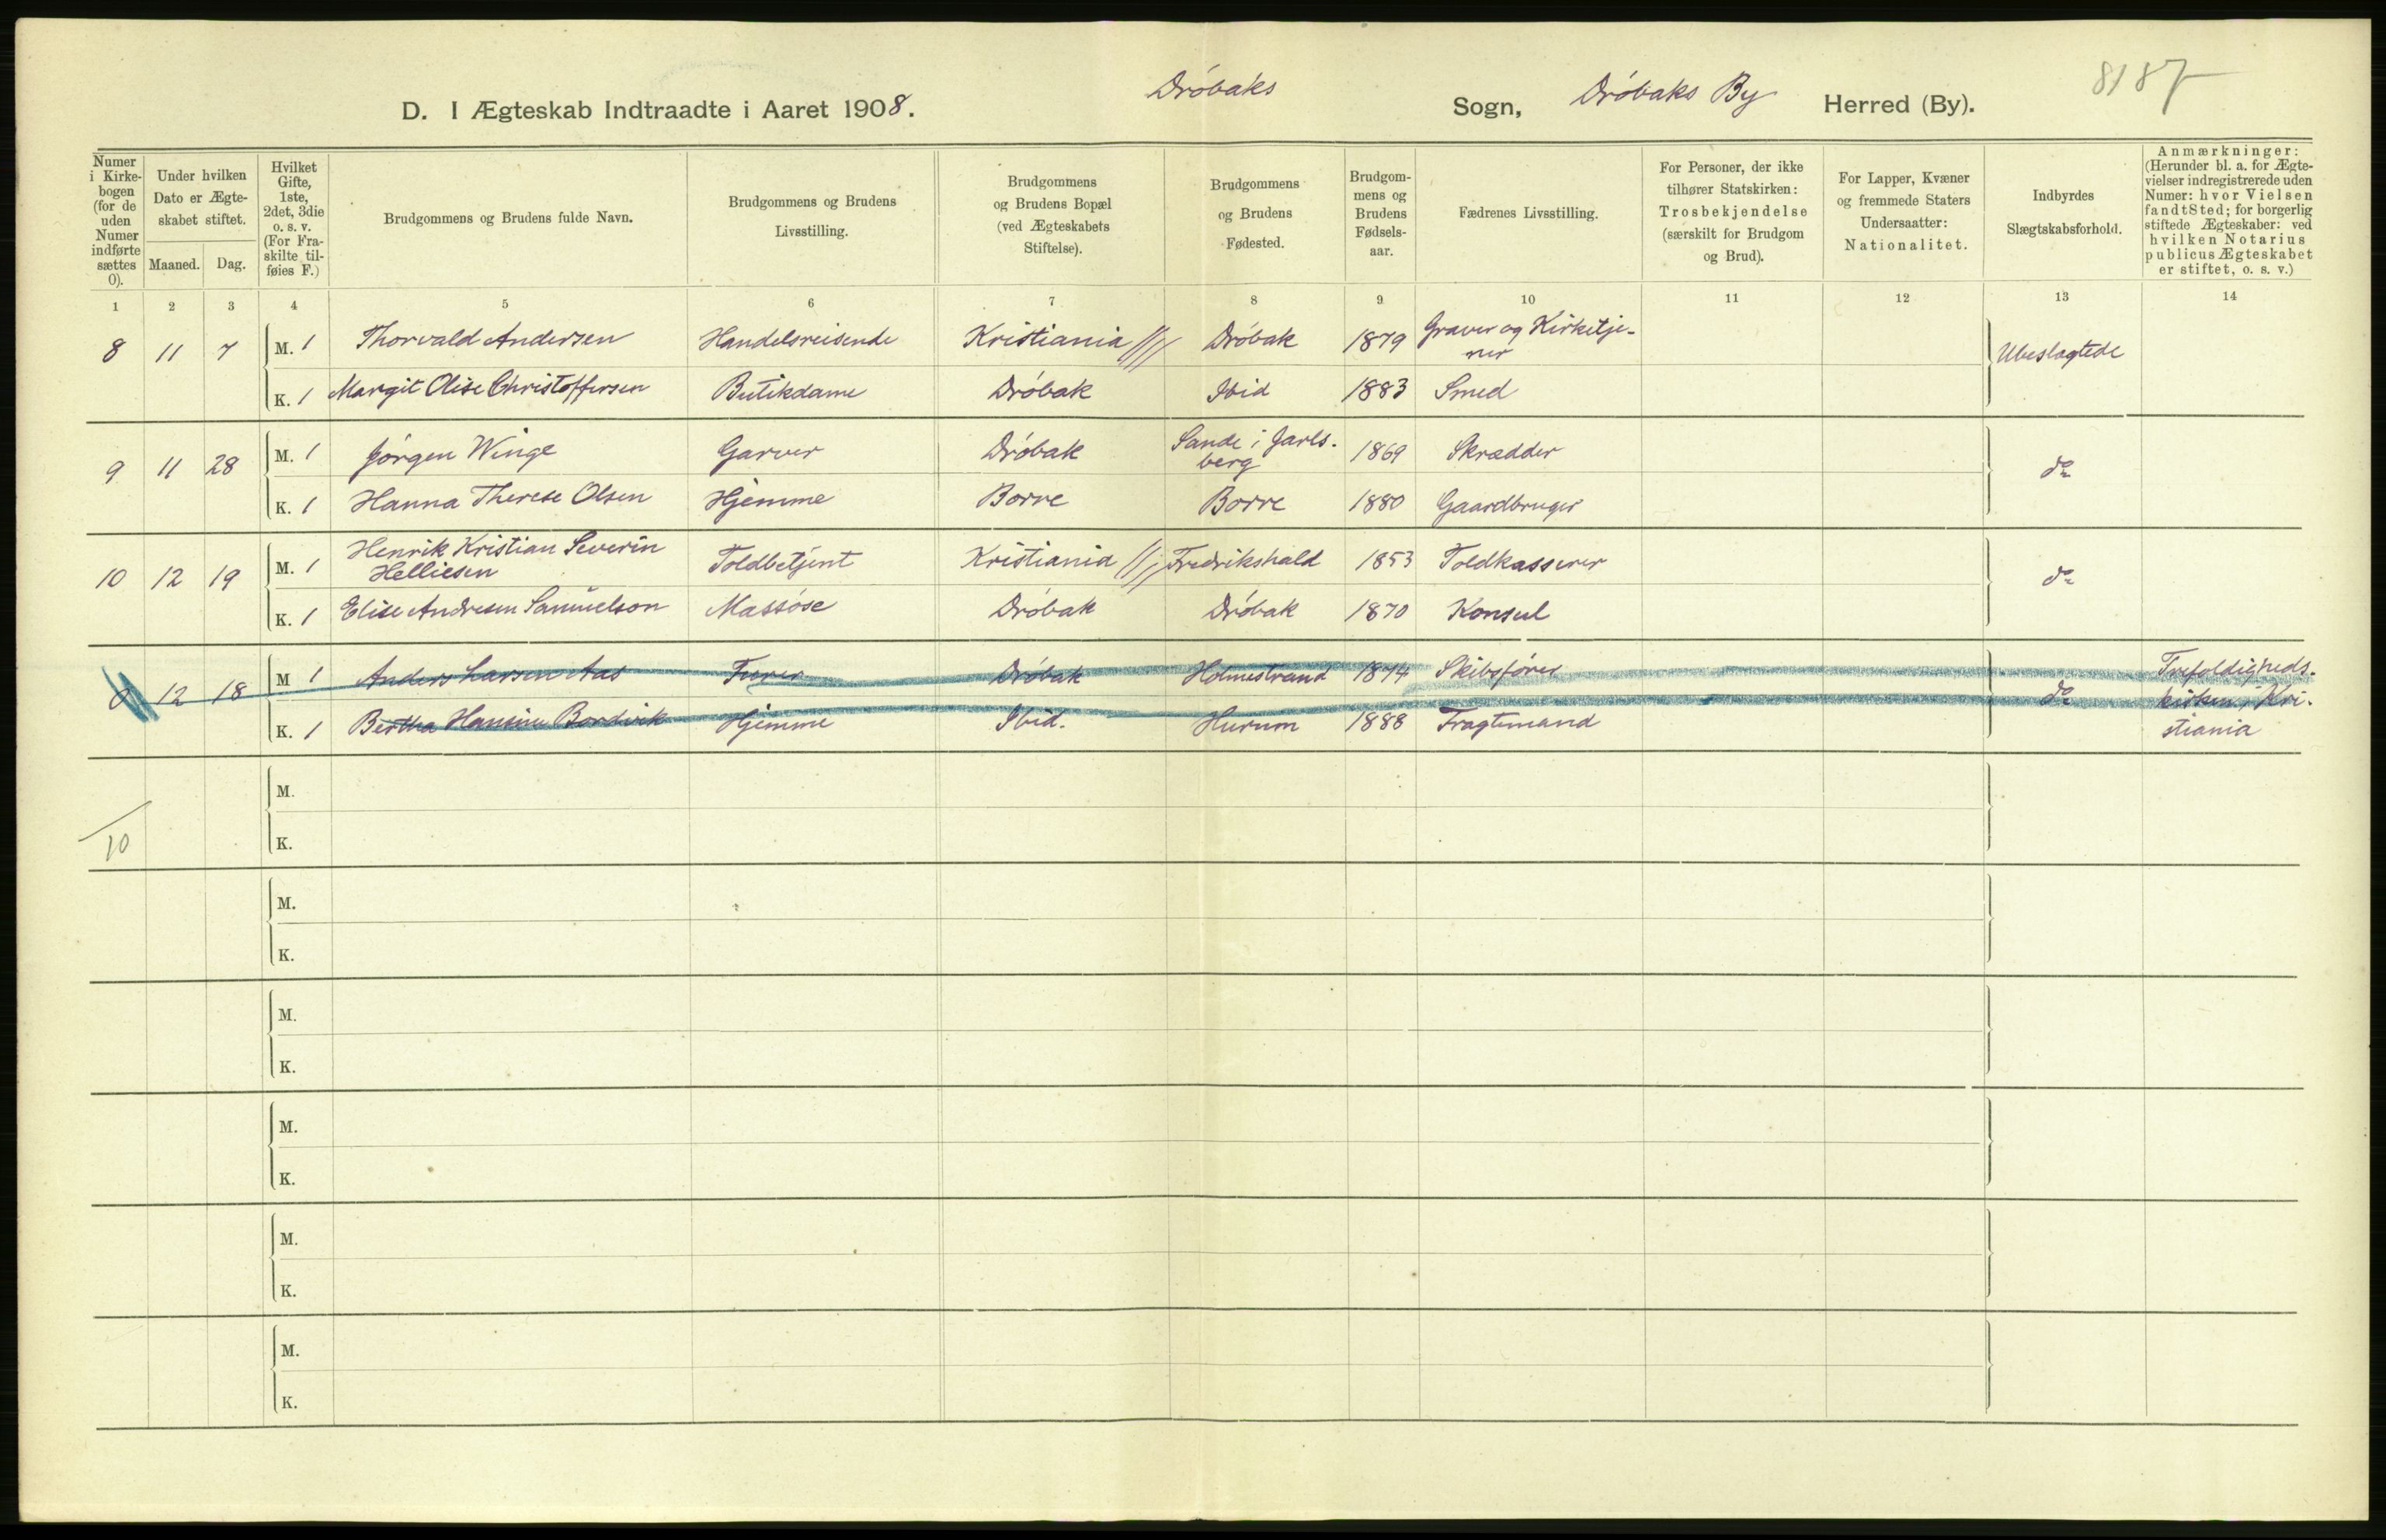 Dröbaks Dröbaks By 8187
D. I Ægteskab Indtraadte i Aaret 1908. Sogn, Herred (By).
Numer i Kirkebogen (for de uden Numer indførte sættes 0).
Under hvilken Dato er Ægteskabet stiftet.
Maaned. Dag.
Hvilket Gifte, 1ste, 2det, 3die o. s. v. (For Fraskilte tilføies F.)
Brudgommens og Brudens fulde Navn.
Brudgommens og Brudens Livsstilling.
Brudgommens og Brudens Bopæl (ved Ægteskabets Stiftelse).
Brudgommens og Brudens Fødested.
Brudgommens og Brudens Fødselsaar.
Fædrenes Livsstilling.
For Personer, der ikke tilhører Statskirken: Trosbekjendelse (særskilt for Brudgom og Brud).
For Lapper, Kvæner og fremmede Staters Undersaatter: Nationalitet.
Indbyrdes Slægtskabsforhold.
Anmærkninger: (Herunder bl. a. for Ægtevielser indregistrerede uden Numer: hvor Vielsen fandt Sted; for borgerlig stiftede Ægteskaber: ved hvilken Notarius publicus Ægteskabet er stiftet, o. s. v.)
1 2 3 4 5 6 7 8 9 10 11 12 13 14
8 11 7 M. 1 Thorvald Andersen Handelsreisende Kristiania Dröbak 1879 Graver og Kirketjener Ubeslagtede
K. 1 Margit Olise Christoffersen Butikdame Dröbak Ibid 1883 Smed
9 11 28 M. 1 Jörgen Winge Garver Dröbak Sande i Jarlsberg 1869 Skrædder do
K. 1 Hanna Therese Olsen Hjemme Borre Borre 1880 Gaardbruger
10 12 19 M. 1 Henrik Kristian Severin Helliesen Toldbetjent Kristiania Fredrikshald 1853 Toldkasserer do
K. 1 Elise Andresen Samuelson Massöse Dröbak Dröbak 1870 Konsul
0 12 18 M 1 Anders Larsen Aas Dröbak Holmestrand 1874 Skibsförer do Trefoldighedskirken i Kristiania
K. 1 Bertha Hansine Bordvik Hjemme Ibid. Hurum 1888 Fragtemand
M.
10
K.
M.
K.
M.
K.
M.
K.
M.
K.
M.
K.